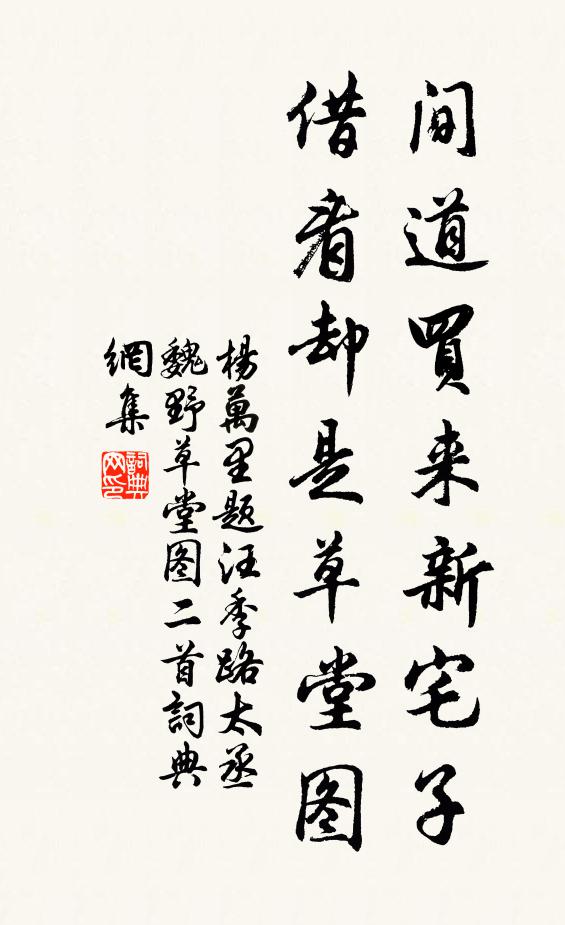 间道買来新宅子
借看却是草堂图
楊萬里题汪季路太丞
魏野草堂图二首詞典
網集
詞典网印